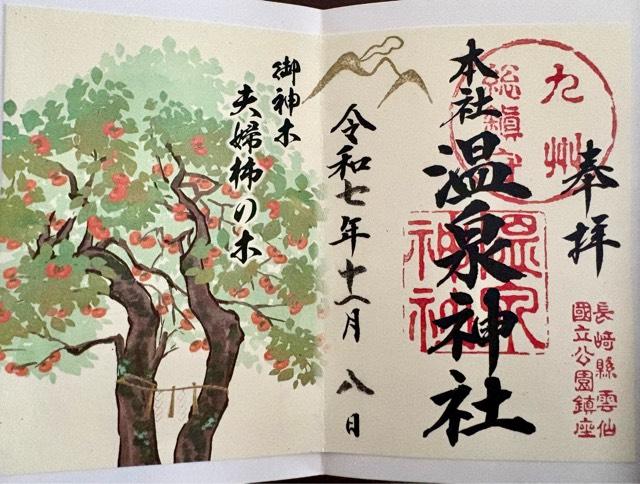 奉拝
九州
総鎮守
長崎縣雲仙
國立公園鎮座
本社
温泉神社
温泉
神社
令和七年十一月八日
御神木
夫婦柿の木